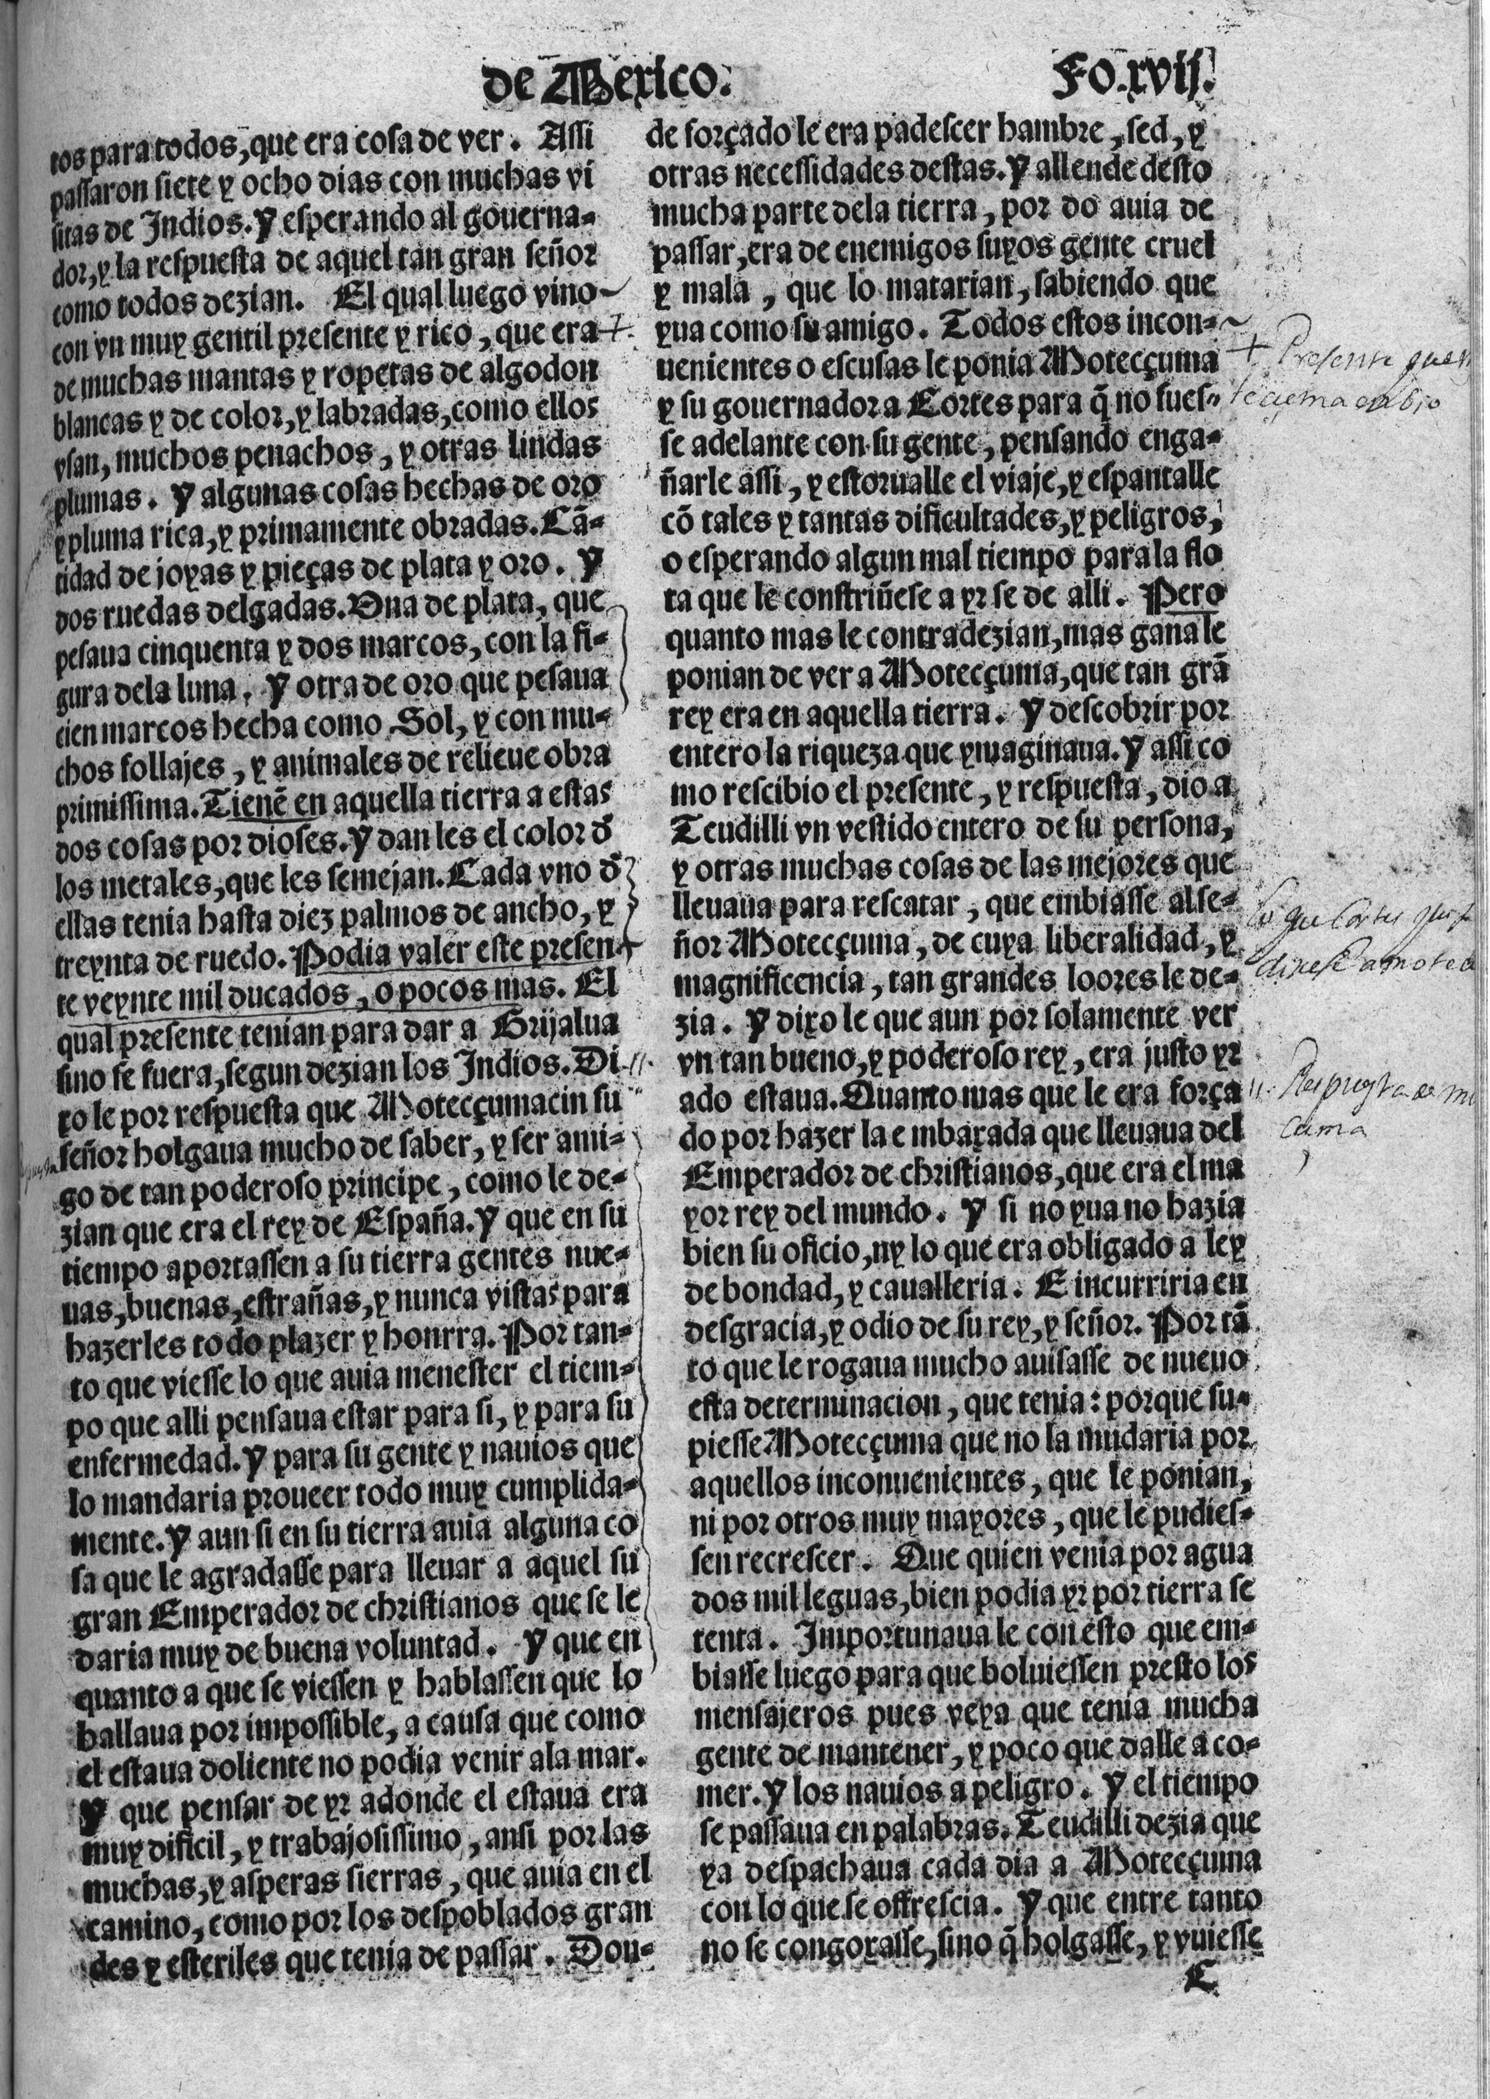 de Mexico.
Fo.xvij.
tos para todos, que era cosa de ver. Assi
passaron siete y ocho dias con muchas vi
sitas de Indios. Y esperando al gouerna-
dor, y la respuesta de aquel tan gran señor
como todos dezian. El qual luego vino
con vn muy gentil presente y rico, que era
de muchas mantas y ropetas de algodon
blancas y de color, y labradas, como ellos
vsan, muchos penachos, y otras lindas
plumas. Y algunas cosas hechas de oro
y pluma rica, y primamente obradas. Cã-
tidad de joyas y pieças de plata y oro. Y
dos ruedas delgadas. Vna de plata, que
pesaua cinquenta y dos marcos, con la fi-
gura dela luna. Y otra de oro que pesaua
cien marcos hecha como Sol, y con mu-
chos follajes, y animales de relieue obra
primissima. Tienẽ en aquella tierra a estas
dos cosas por dioses. Y dan les el color d̃
los metales, que les semejan. Cada vno d̃
ellas tenia hasta diez palmos de ancho, y
treynta de ruedo. Podia valer este presen
te veynte mil ducados, o pocos mas. El
qual presente tenian para dar a Grijalua
sino se fuera, segun dezian los Indios. Di
xo le por respuesta que Moteccçumacin su
señor holgaua mucho de saber, y ser ami-
go de tan poderoso principe, como le de-
zian que era el rey de España. Y que en su
tiempo aportassen a su tierra gentes nue-
uas, buenas, estrañas, y nunca vistas para
hazerles todo plazer y honrra. Por tan-
to que viesse lo que auia menester el tiem-
po que alli pensaua estar para si, y para su
enfermedad. Y para su gente y nauios que
lo mandaria proueer todo muy cumplida-
mente. Y aun si en su tierra auia alguna co
sa que le agradasse para lleuar a aquel su
gran Emperador de christianos que se le
daria muy de buena voluntad. Y que en
quanto a que se viessen y hablassen que lo
hallaua por impossible, a causa que como
el estaua doliente no podia venir ala mar.
Y que pensar de yr adonde el estaua era
muy dificil, y trabajosissimo, ansi por las
muchas, y asperas sierras, que auia en el
camino, como por los despoblados gran
des y esteriles que tenia de passar. Don-
de forçado le era padescer hambre, sed, y
otras necessidades destas. Y allende desto
mucha parte dela tierra, por do auia de
passar, era de enemigos suyos gente cruel
y mala, que lo matarian, sabiendo que
yua como su amigo. Todos estos incon-
uenientes o escusas le ponia Motecçuma
y su gouernador a Cortes para q̃ no fues-
se adelante con su gente, pensando enga-
ñarle assi, y estorualle el viaje, y espantalle
cõ tales y tantas dificultades, y peligros,
o esperando algun mal tiempo para la flo
ta que le constriñese a yr se de alli. Pero
quanto mas le contradezian, mas gana le
ponian de ver a Motecçuma, que tan grã
rey era en aquella tierra. Y descobrir por
entero la riqueza que ymaginaua. Y assi co
mo rescibio el presente, y respuesta, dio a
Teudilli vn vestido entero de su persona,
y otras muchas cosas de las mejores que
lleuaua para rescatar, que embiasse al se-
ñor Motecçuma, de cuya liberalidad, y
magnificencia, tan grandes loores le de-
zia. Y dixo le que aun por solamente ver
vn tan bueno, y poderoso rey, era justo yr
ado estaua. Quanto mas que le era força
do por hazer la embaxada que lleuaua del
Emperador de christianos, que era el ma
yor rey del mundo. Y si no yua no hazia
bien su oficio, ny lo que era obligado a ley
de bondad, y caualleria. E incurriria en
desgracia, y odio de su rey, y señor. Por tã
to que le rogaua mucho auisasse de nueuo
esta determinacion, que tenia: porque su-
piesse Motecçuma que no la mudaria por
aquellos inconuenientes, que le ponian,
ni por otros muy mayores, que le pudies-
sen recrescer. Que quien venia por agua
dos mil leguas, bien podia yr por tierra se
tenta. Importunaua le con esto que em-
biasse luego para que boluiessen presto los
mensajeros pues veya que tenia mucha
gente de mantener, y poco que dalle a co-
mer. Y los nauios a peligro. Y el tiempo
se passaua en palabras. Teudilli dezia que
ya despachaua cada dia a Motecçuma
con lo que se offrescia. Y que entre tanto
no se congoxasse, sino q̃ holgasse, y vuiesse
C
+ Presente que
cuma enbio
lo que Cortes
Respuesta de
cuma